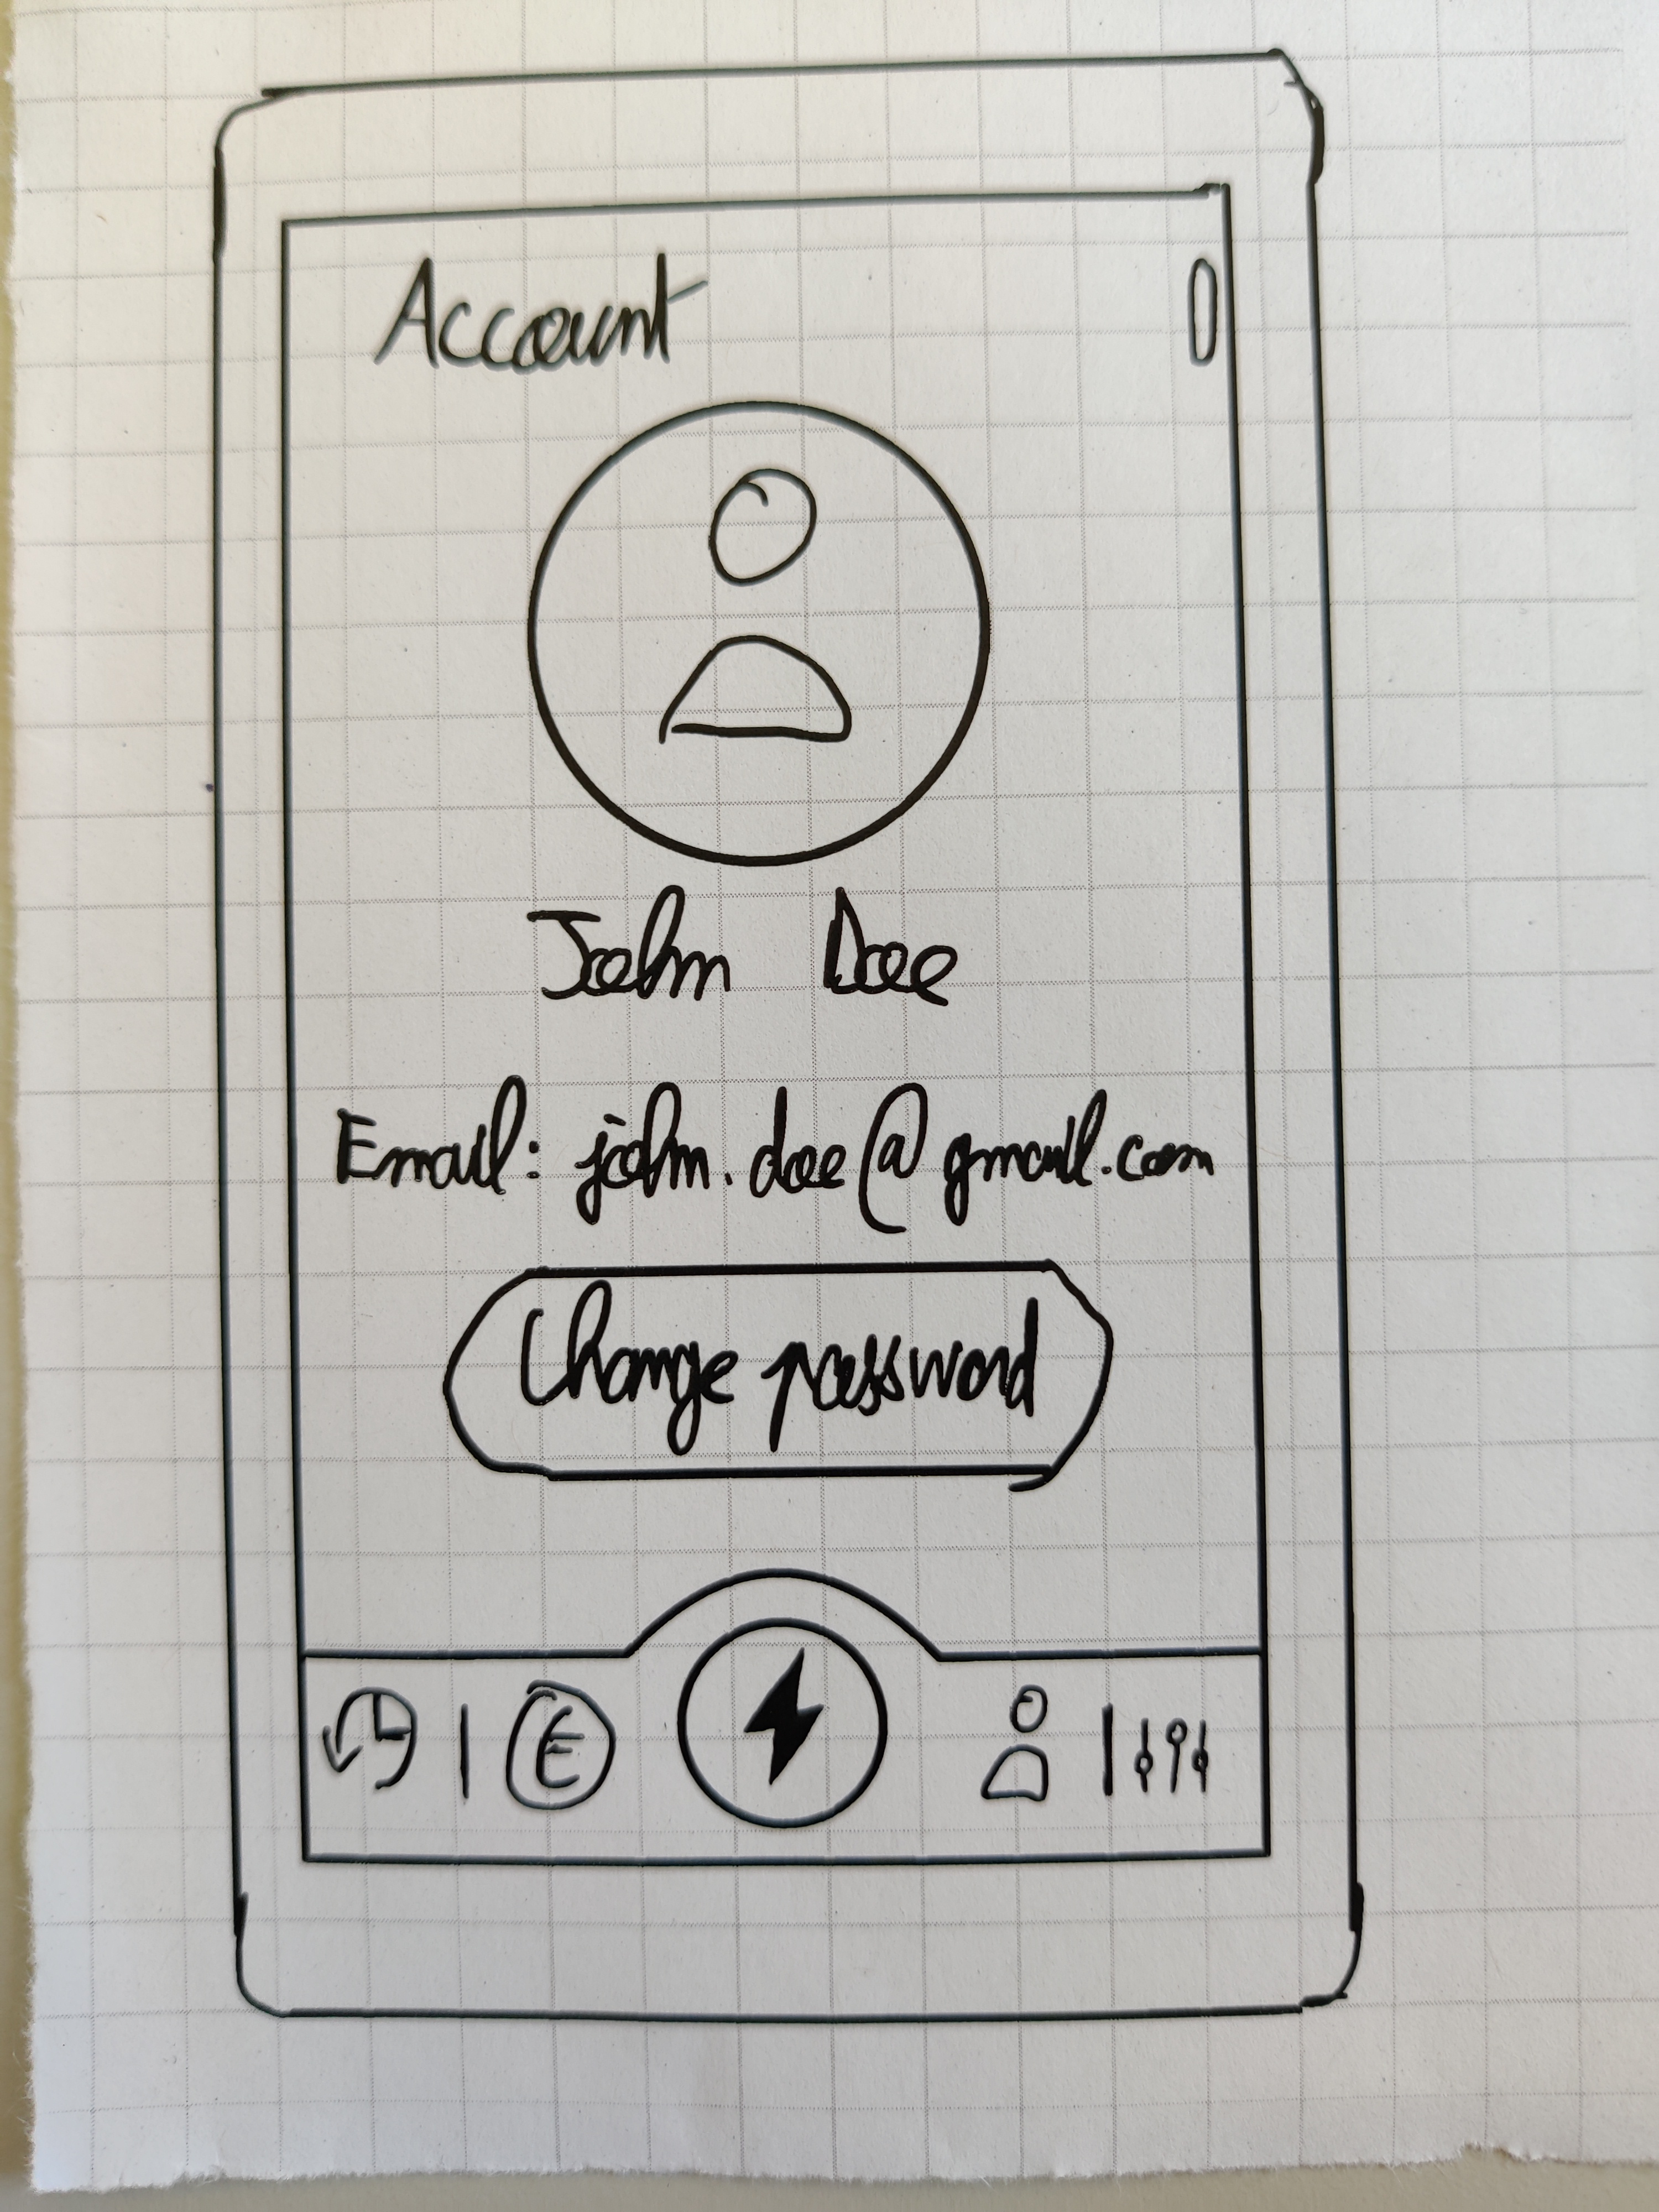 Account
John Doe
Email: john.doe@gmail.com
Change password
€